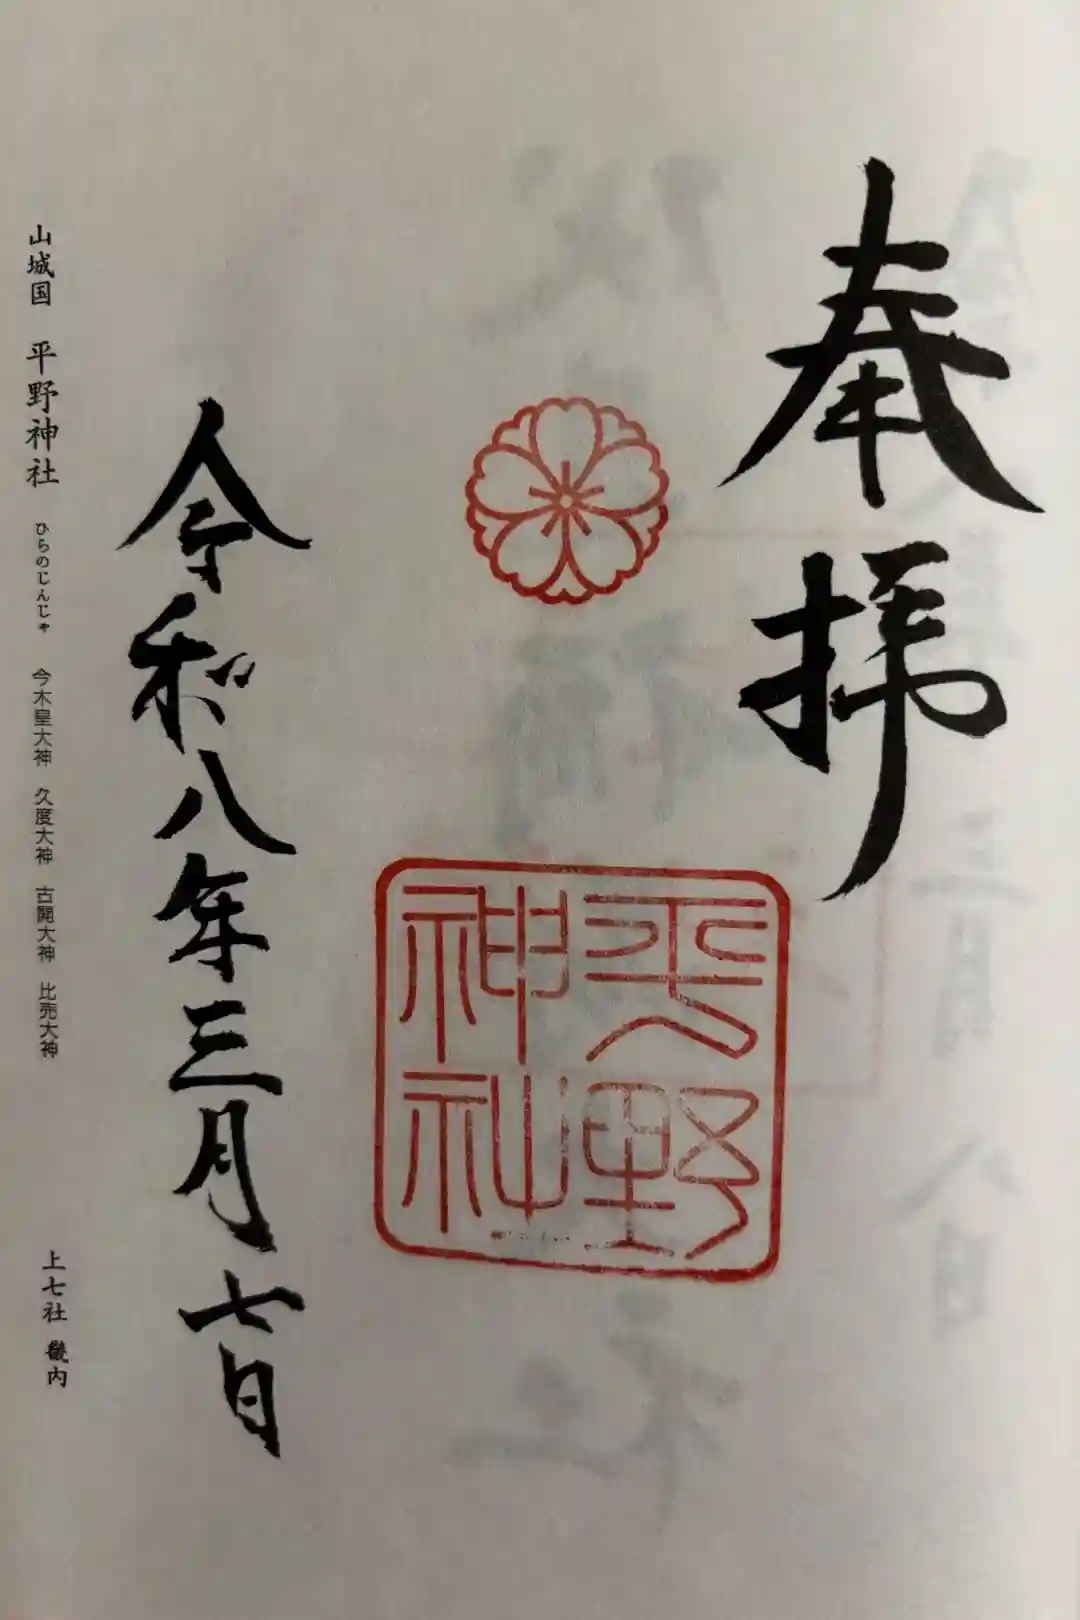 奉拝
平野
神社
令和八年三月七日
山城国 平野神社 ひらのじんじゃ 今木皇大神 久度大神 古開大神 比売大神 上七社 畿内